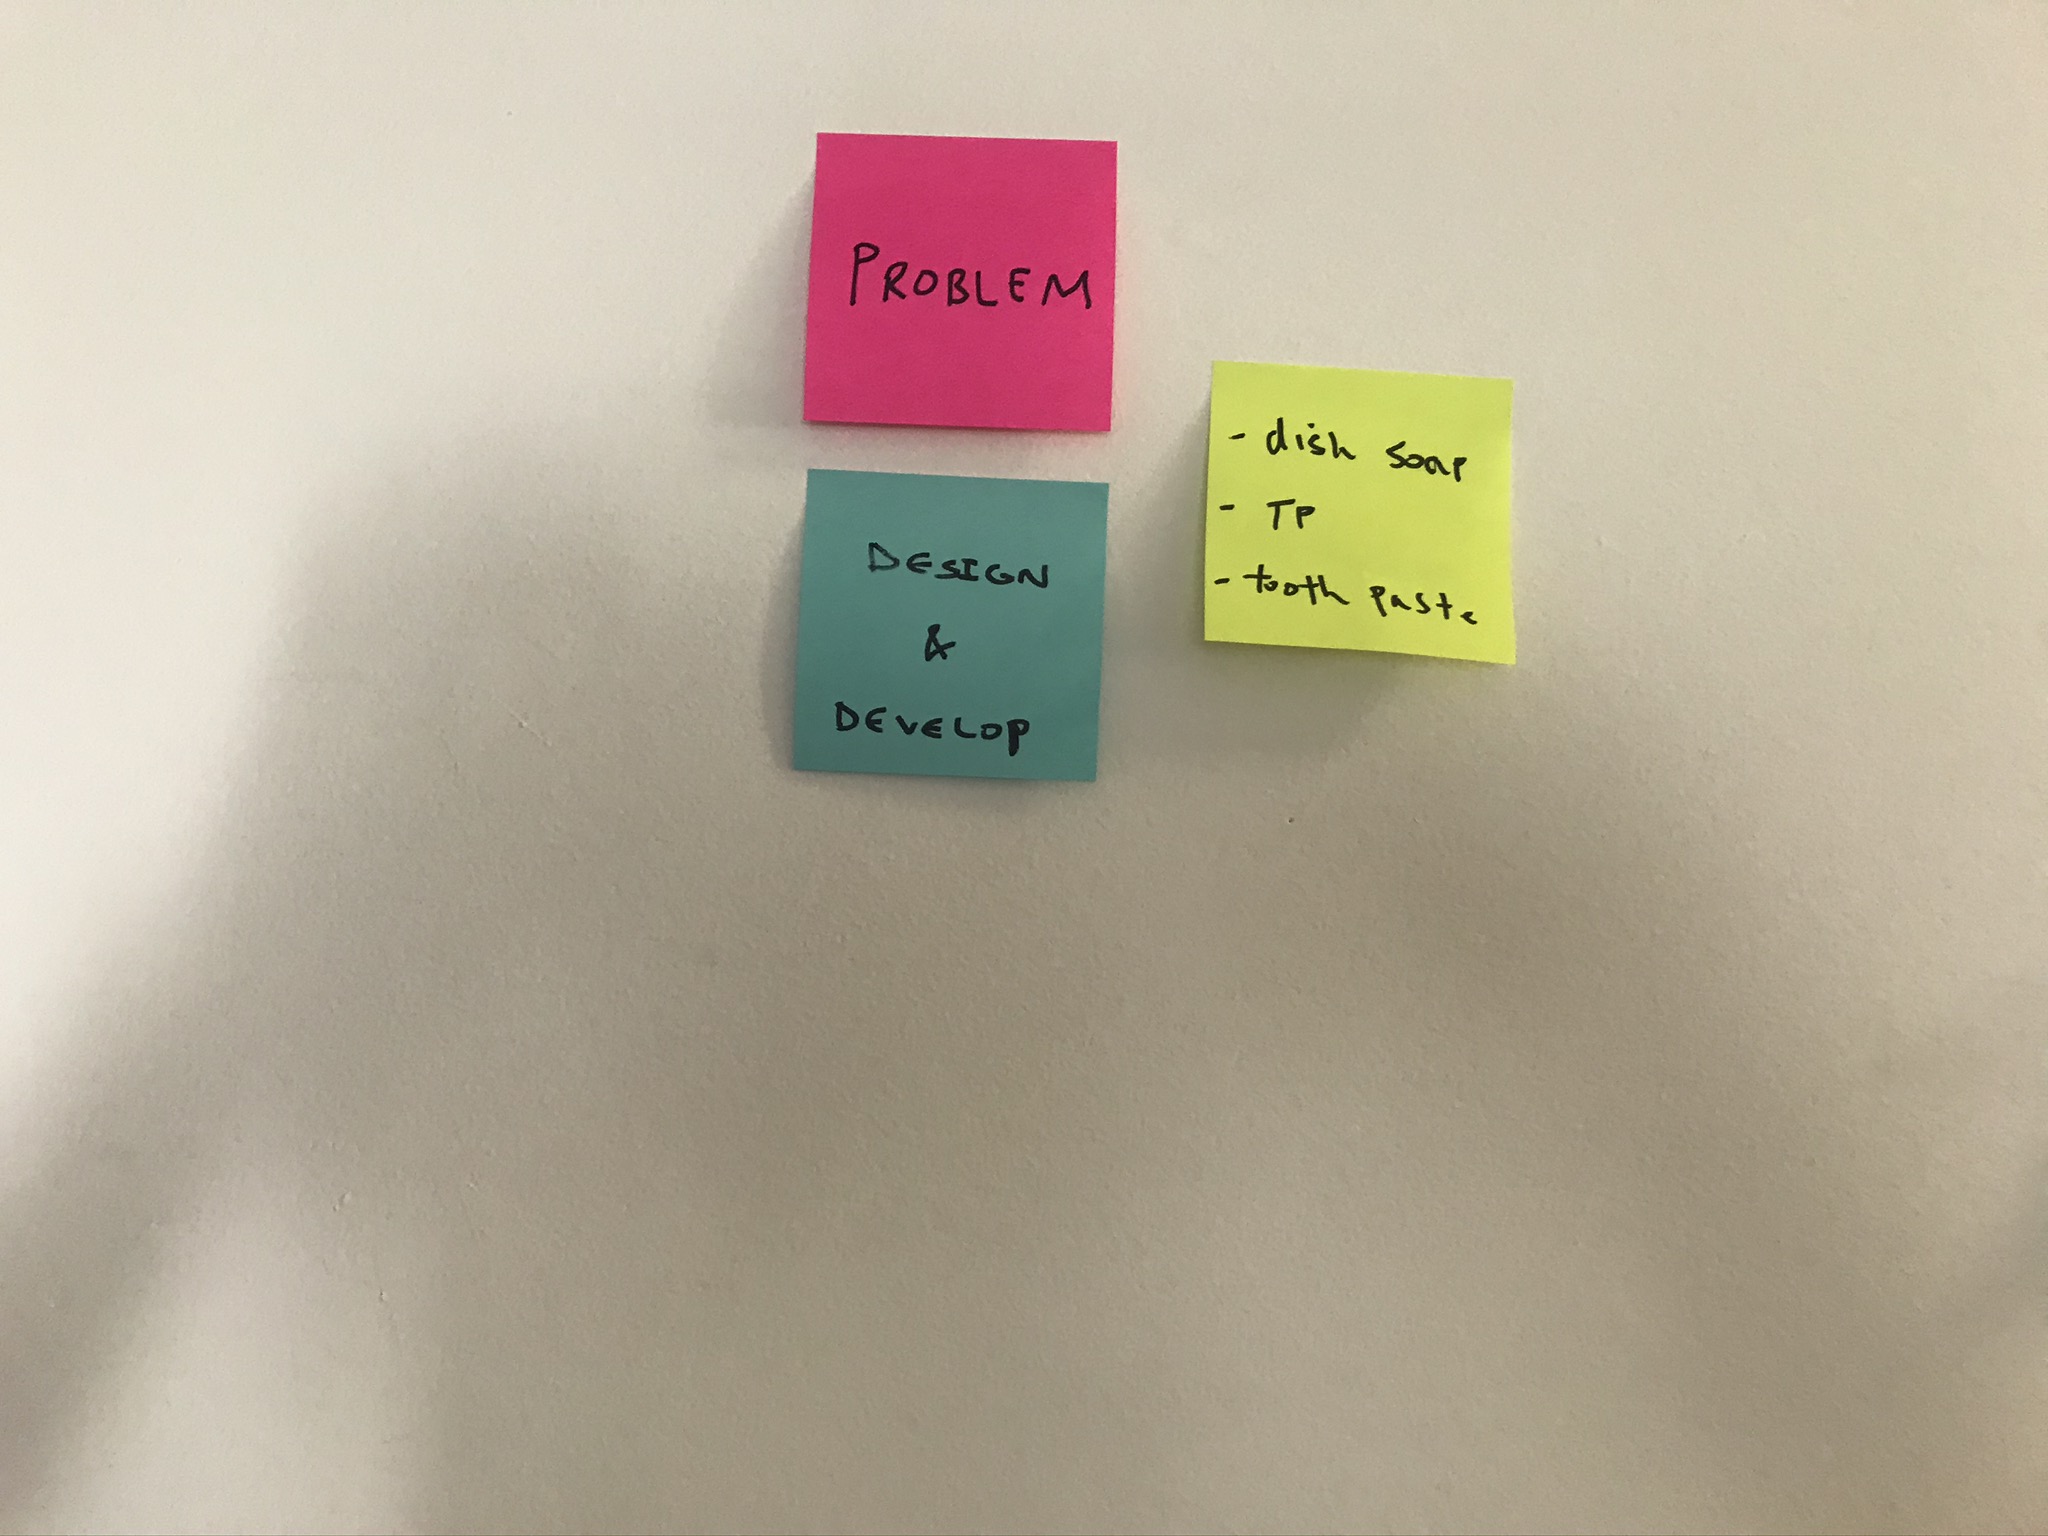 PROBLEM
DESIGN
&
DEVELOP
- dish soap
- TP
- tooth paste